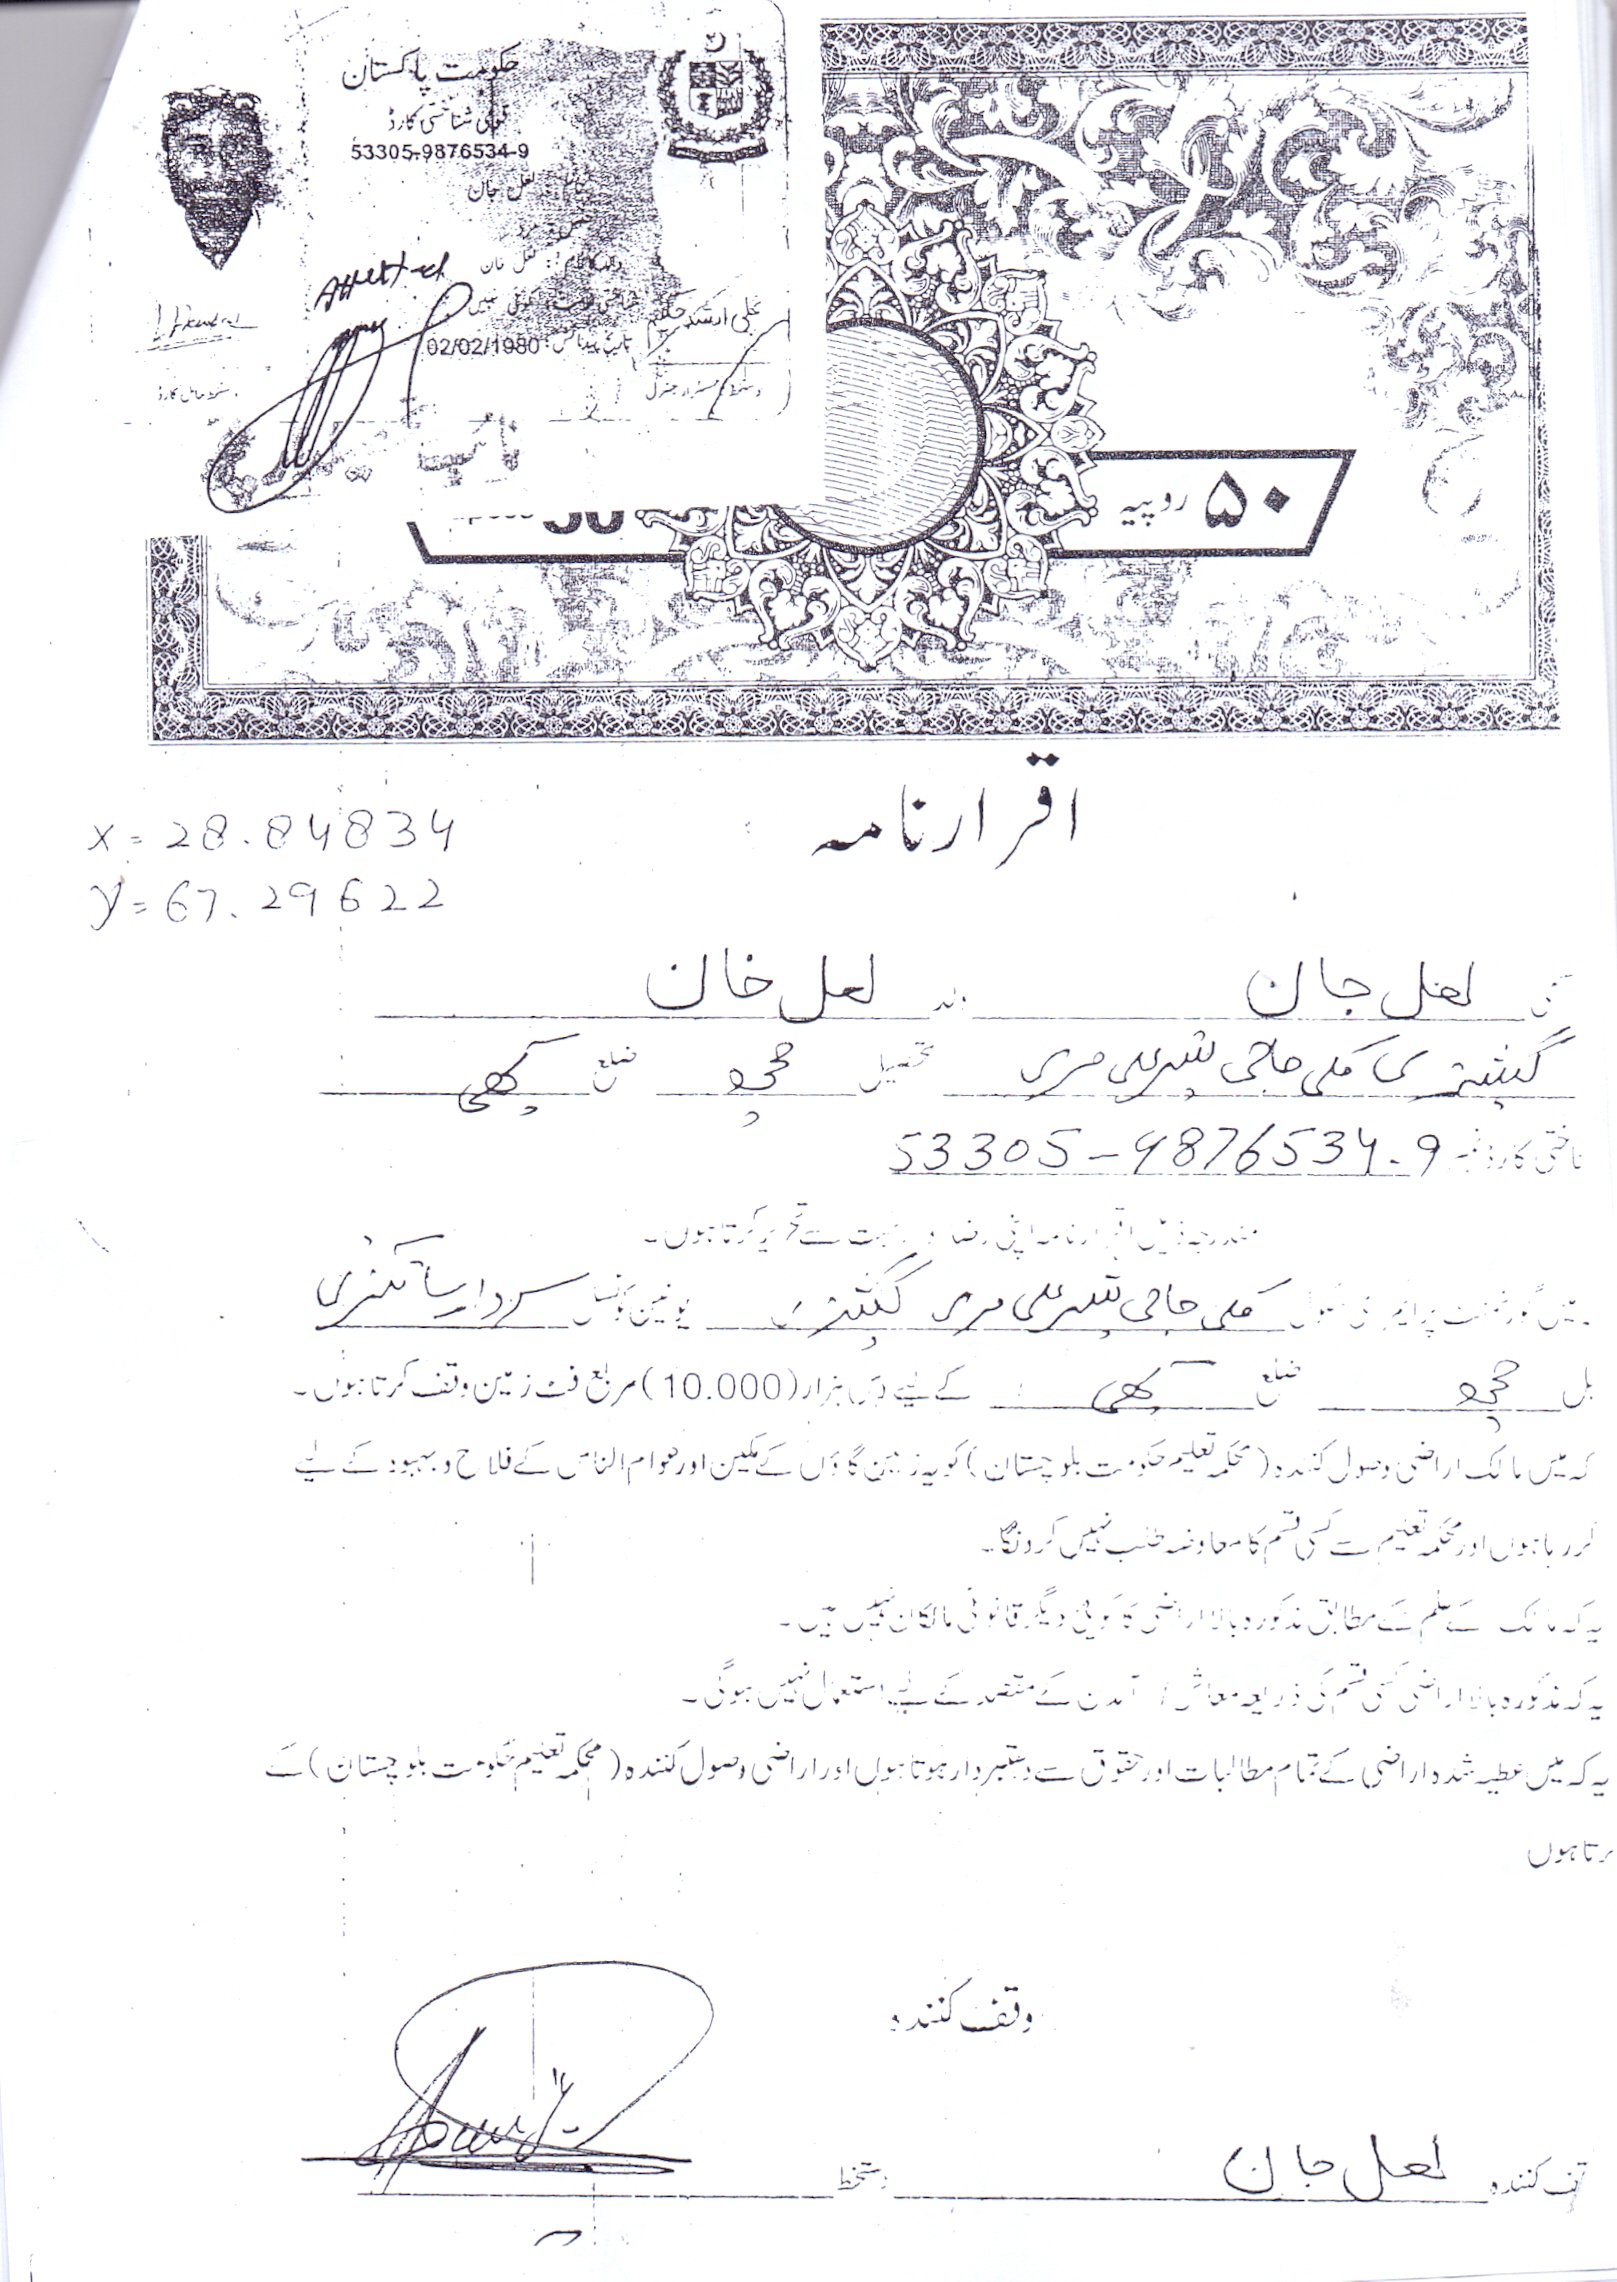 حکومت پاکستان
قومی شناختی کارڈ
53305-9876534-9
لعل جان
لعل خان
Attested
علی ارشد حکیم
تاریخ پیدائش: 02/02/1980
دستخط رجسٹرار جنرل
دستخط حامل کارڈ
نائب
۵۰ روپیہ
50
اقرارنامہ
x = 28.84834
y = 67.29622
لعل جان ولد لعل خان
کلی حاجی شیر علی مری تحصیل مچھ ضلع کچھی
ناختی کارڈ نمبر 53305-9876534-9
مندرجہ ذیل اقرار نامہ اپنی رضا و رغبت سے تحریر کرتا ہوں۔
میں گورنمنٹ پرائمری سکول کلی حاجی شیر علی مری یونین کونسل
یل مچھ ضلع کچھی کے لیے دس ہزار (10.000) مربع فٹ زمین وقف کرتا ہوں۔
کہ میں مالک اراضی وصول کنندہ (محکمہ تعلیم حکومت بلوچستان) کو یہ زمین گاؤں کے مکین اور عوام الناس کے فلاح و بہبود کے لیے
کر رہا ہوں اور محکمہ تعلیم سے کسی قسم کا معاوضہ طلب نہیں کرونگا۔
یہ کہ مالک کے علم کے مطابق مذکورہ بالا اراضی کا کوئی دیگر قانونی مالکان نہیں ہیں۔
یہ کہ مذکورہ بالا اراضی کسی قسم کی ذریعہ معاش / آمدن کے مقصد کے لیے استعمال نہیں ہوگی۔
یہ کہ میں عطیہ شدہ اراضی کے تمام مطالبات اور حقوق سے دستبردار ہوتا ہوں اور اراضی وصول کنندہ (محکمہ تعلیم حکومت بلوچستان) کے
رتا ہوں
وقف کنندہ
قف کنندہ لعل جان دستخط